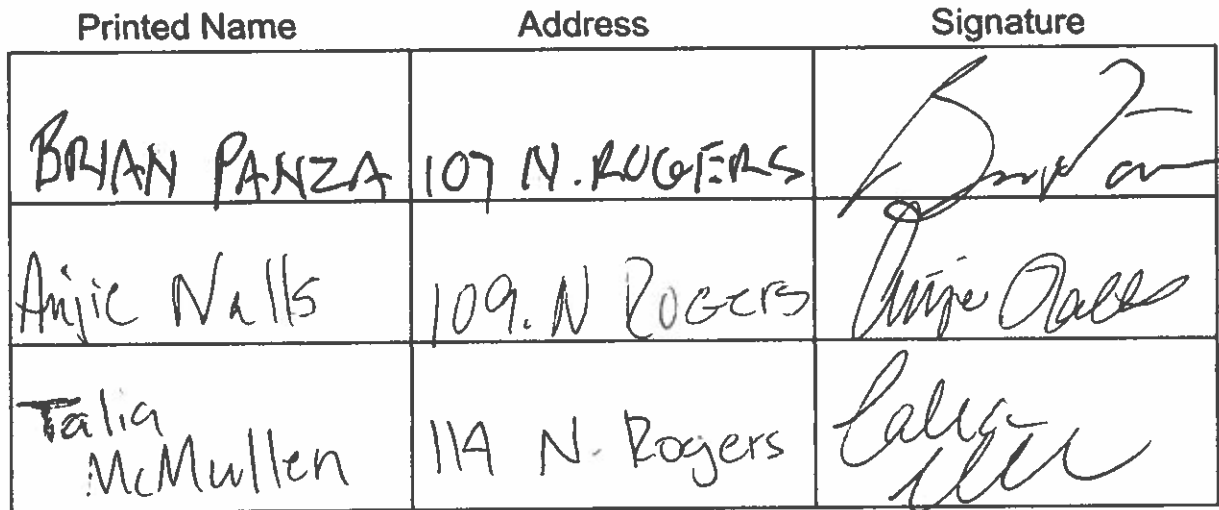 Printed Name Address Signature
BRIAN PANZA 107 N. ROGERS
Anjie Nalls 109. N ROGERS Anjie Nalls
Talia
McMullen 114 N. Rogers Talia